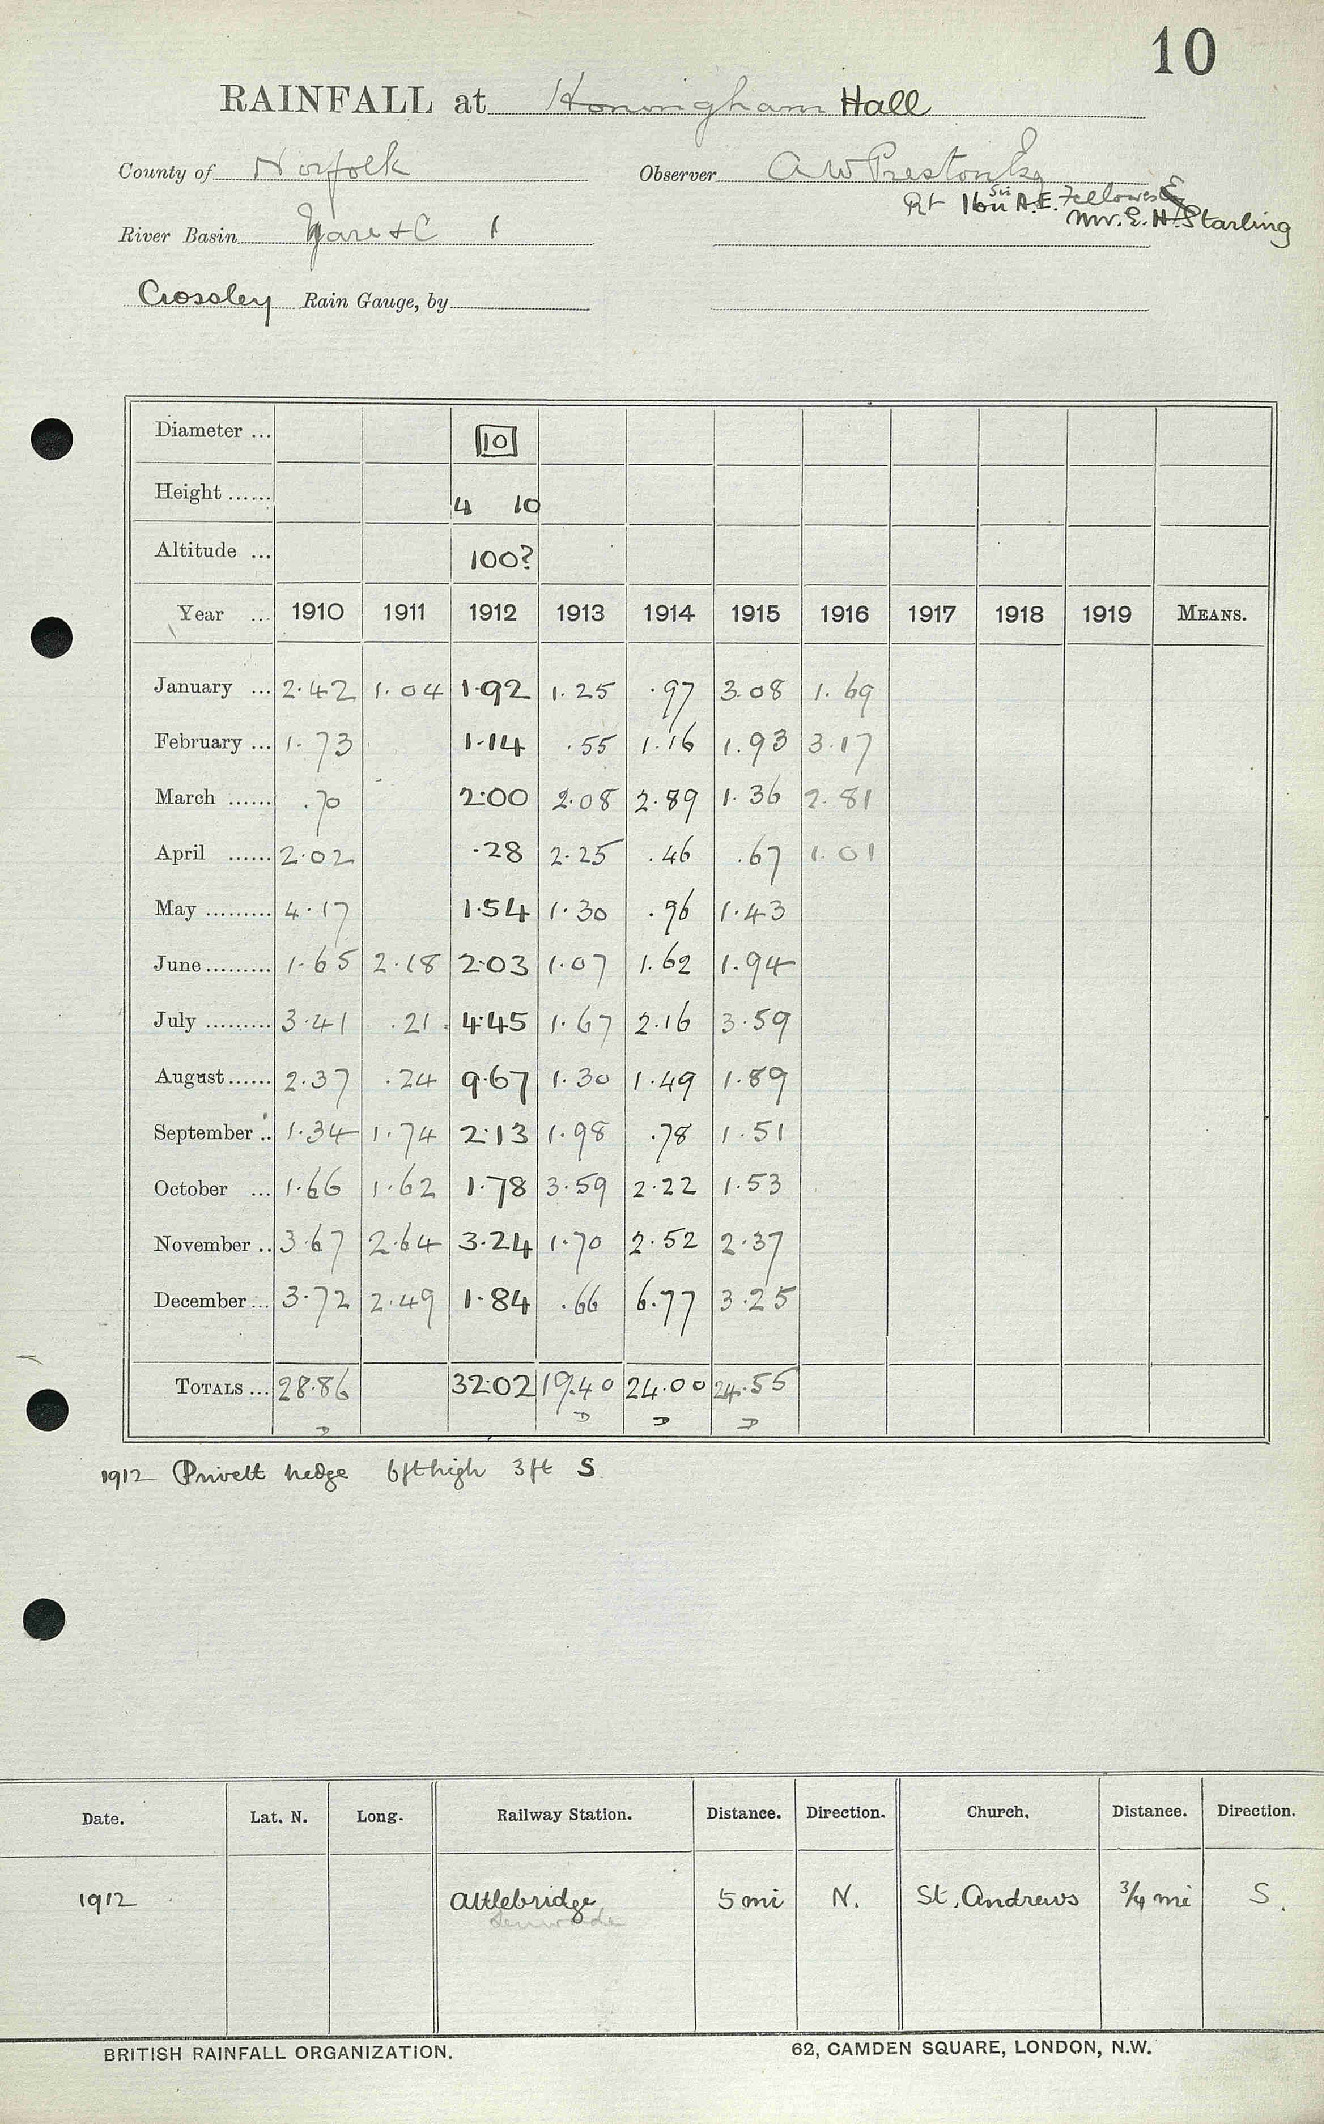 10
RAINFALL at Honingham Hall
County of Norfolk Observer A W Preston Esq
Rt Hon Sir A. E. Fellowes
River Basin Yare + C 1 Mr. E. H. Starling
Crossley Rain Gauge, by
Diameter ... 10
Height ...... 4 10
Altitude ... 100?
Year ... 1910 1911 1912 1913 1914 1915 1916 1917 1918 1919 MEANS.
January ... 2.42 1.04 1.92 1.25 .97 3.08 1.69
February ... 1.73 1.14 .55 1.16 1.93 3.17
March ...... .70 2.00 2.08 2.89 1.36 2.81
April ...... 2.02 .28 2.25 .46 .67 1.01
May ......... 4.17 1.54 1.30 .96 1.43
June ......... 1.65 2.18 2.03 1.07 1.62 1.94
July ......... 3.41 .21 4.45 1.67 2.16 3.59
August ...... 2.37 .24 9.67 1.30 1.49 1.89
September .. 1.34 1.74 2.13 1.98 .78 1.51
October ... 1.66 1.62 1.78 3.59 2.22 1.53
November .. 3.67 2.64 3.24 1.70 2.52 2.37
December ... 3.72 2.49 1.84 .66 6.77 3.25
TOTALS ... 28.86 32.02 19.40 24.00 24.55
D D D D
1912 Privett hedge 6ft high 3ft S
Date. Lat. N. Long. Railway Station. Distance. Direction. Church. Distance. Direction.
1912 Attlebridge 5 mi N. St. Andrews 3/4 mi S.
BRITISH RAINFALL ORGANIZATION. 62, CAMDEN SQUARE, LONDON, N.W.